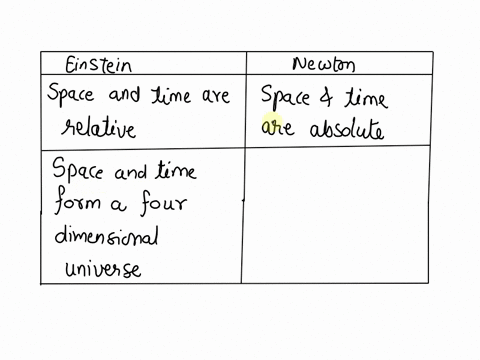 Einstein
Newton
Space and time are
relative
Space & time
are absolute
Space and time
form a four
dimensional
universe